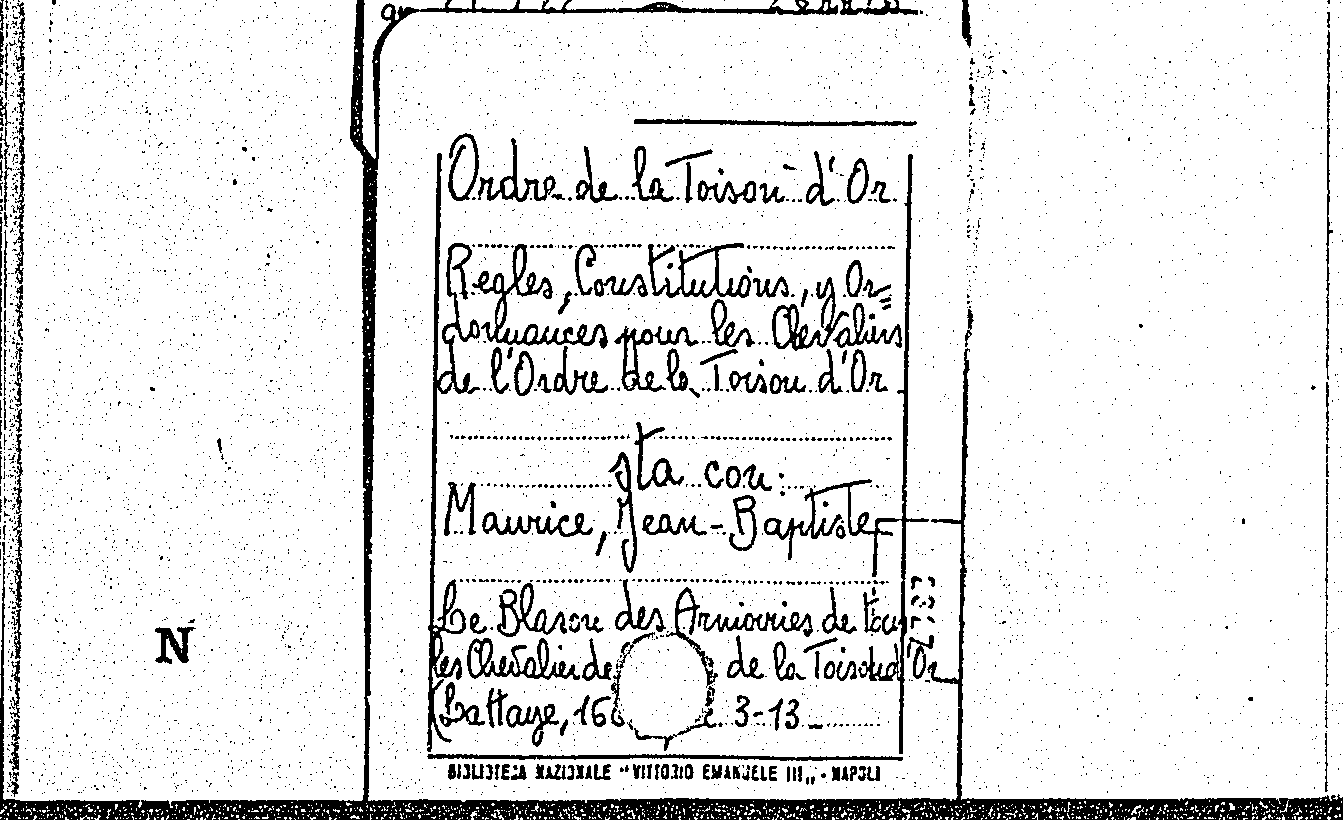 Ordre de la Toison d'Or
Regles, Constitutions, y Or=
donnances pour les Chevaliers
de l'Ordre de la Toison d'Or.
sta con:
Maurice, Jean-Baptiste
Le Blason des Armoiries de tous
les Chevalier de de la Toison d'Or
(La Haye, 16 3-13
BIBLIOTECA NAZIONALE "VITTORIO EMANUELE III" - NAPOLI
N